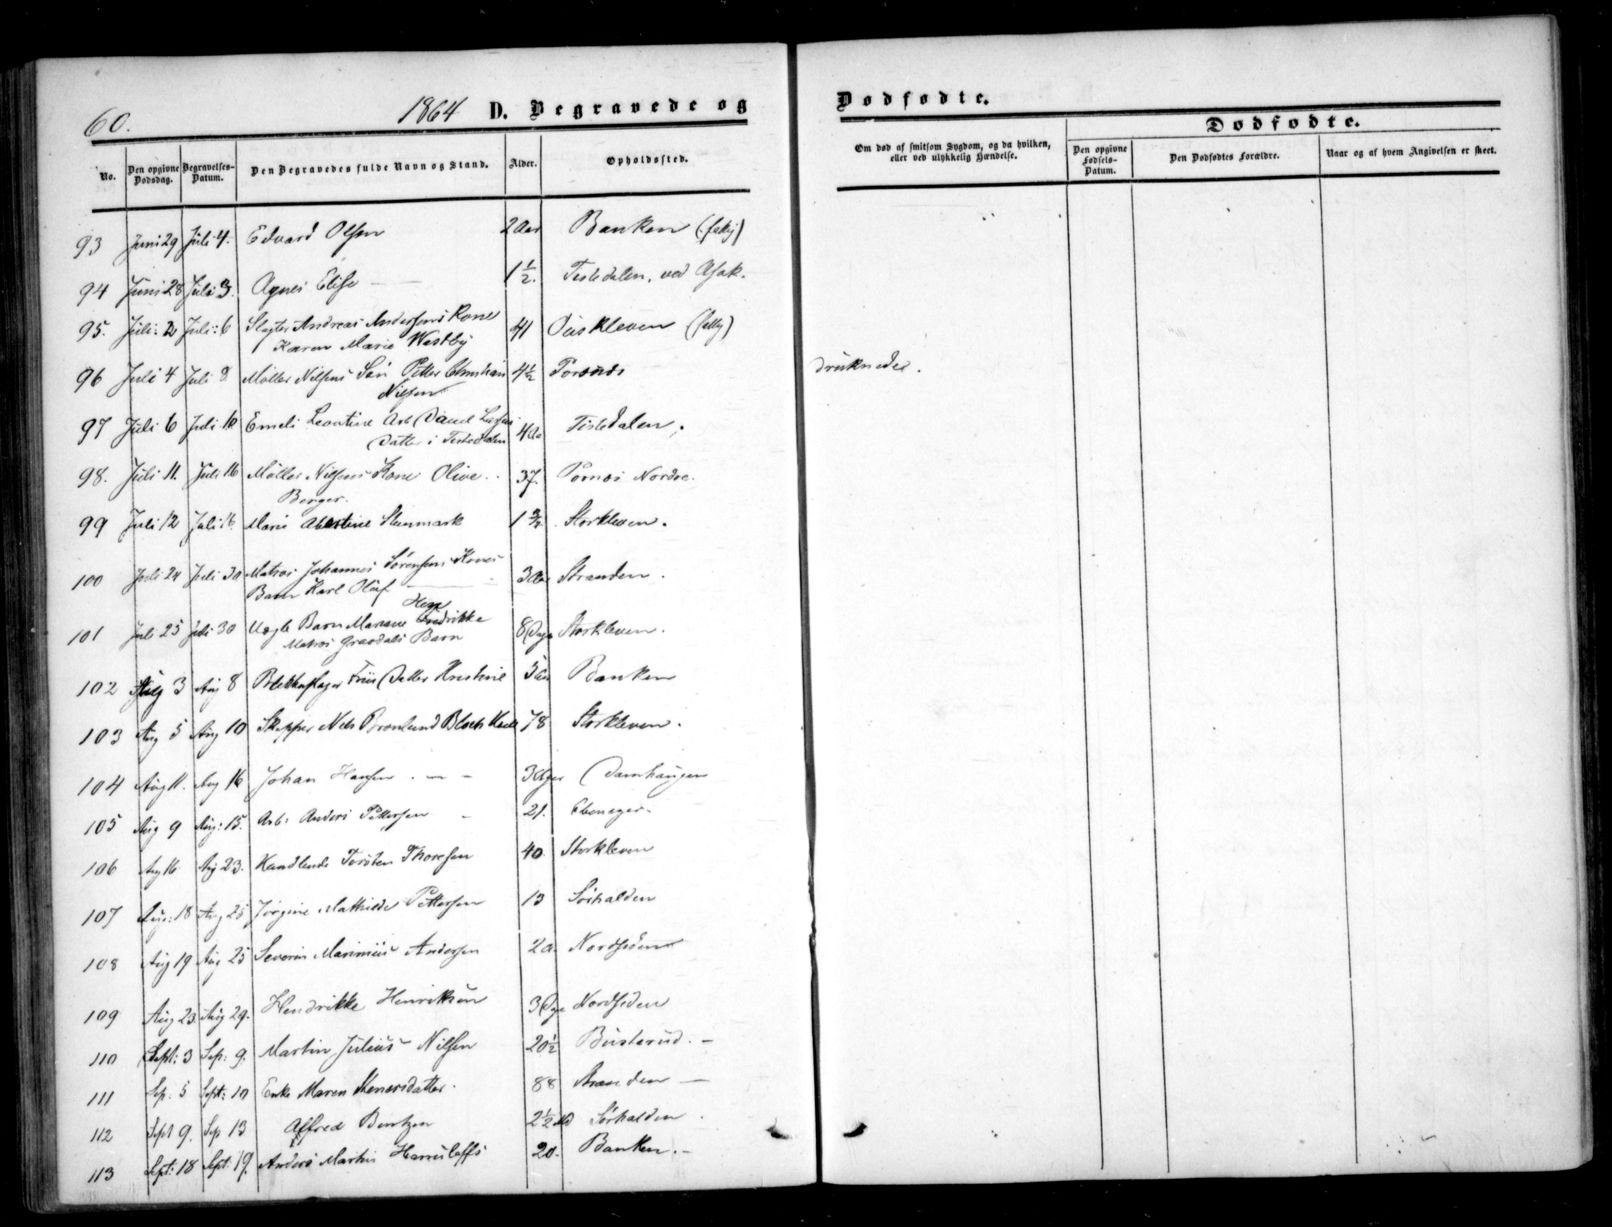 60.
1864 D. Begravede og
Dødfødte.
No. Den opgivne Dødsdag. Begravelses-Datum. Den Begravedes fulde Navn og Stand. Alder. Opholdssted.
Om død af smitsom Sygdom, og da hvilken, eller ved ulykkelig Hændelse.
Dødfødte.
Den opgivne Fødsels-Datum. Den Dødfødtes Forældre. Naar og af hvem Angivelsen er skeet.
93 Juni 29 Juli 4. Edvard Olsen 2 Aar Banken
94 Juni 28 Juli 3. Agnes Elise 1½. Tistedalen, ved Asak.
95. Juli: 2 Juli: 6 Slagter Andreas Anderssens Kone 41
Karen Marie Westby
96 Juli 4 Juli 8 Møller Nilsens Søn Petter Christian 4½ druknede.
Nilsen
97 Juli 6 Juli 10 Emeli Leontine Arb Tistedalen.
Datter i Tistedalen
98. Juli 11. Juli 16 Møller Nilsens Kone Olive 37. Nordre.
Berger.
99 Juli 12 Juli 16. Marie Steinmark Storkleven.
100 Juli 24 Juli 30 Matros Johannes Sørensens Kones 3 Aar Stranden.
Barn Karl Oluf
101 Juli 25 Juli 30 Uægte Barn Mariane Fredrikke 8 Dage Storkleven.
Matros Barn
102 Aug 3 Aug 8 Blikkenslager Friis Datter Kristine 5 Banken
103 Aug 5 Aug 10 Skipper Nels 78 Storkleven.
104 Aug 11. Aug 16 Johan Hansen Damhaugen
105 Aug 9 Aug: 15. Arb: Anders Pettersen 21. Ebeneger.
106 Aug 16 Aug 23. Handlende Torsten Thoresen 40 Storkleven
107 Aug: 18 Aug 25 Jørgine Mathilde Pettersen 13 Sørhalden
108 Aug 19 Aug 25 Severin Marinius Andersen 2 a. Nordsiden
109 Aug 23. Aug 29. Hendrikke Henriksen 3 Dage Nordsiden
110 Sept: 3 Sep: 9. Martin Julius Nilsen 20½ Busterud.
111 Sep. 5 Sept: 10 Enke Maren Stenersdatter. 88 Stranden
112 Sept 9. Sep 13 Alfred Bentzen 2½ Sørhalden.
113 Sept: 18 Sept: 19. Anders Martin 20. Banken.